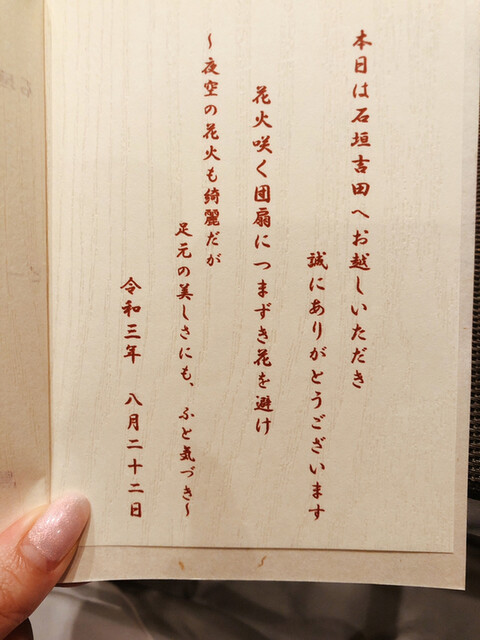 本日は石垣吉田へお越しいただき
誠にありがとうございます
花火咲く団扇につまずき花を避け
〜夜空の花火も綺麗だが
足元の美しさにも、ふと気づき〜
令和三年 八月二十二日